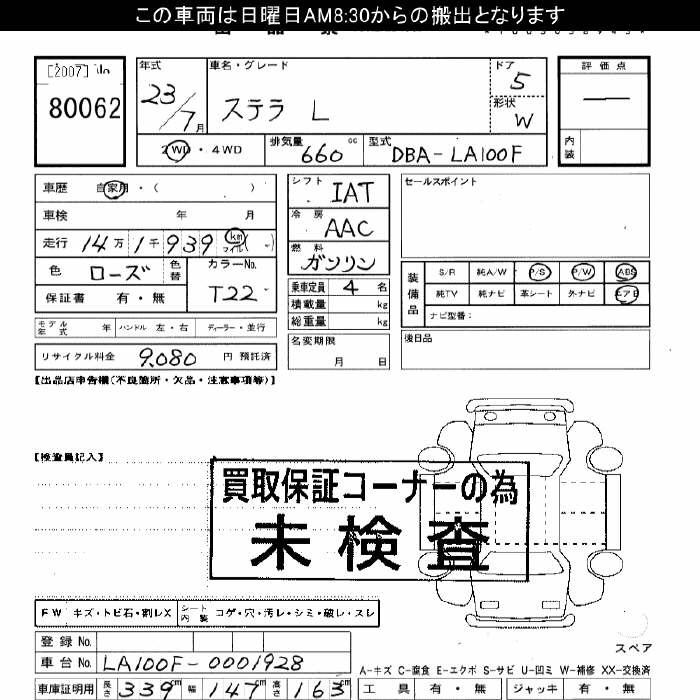 この車両は日曜日AM8:30からの搬出となります
[2007] No
80062
年式 23/7月
車名・グレード ステラ L
ドア 5
形状 W
評価点 —
内装
2WD・4WD
排気量 660 cc
型式 DBA-LA100F
車歴 自家用・( )
車検 年 月
走行 14万1千939 km マイル( )
色 ローズ 色替
カラーNo. T22
保証書 有・無
モデル年式 年 ハンドル 左・右 ディーラー・並行
リサイクル料金 9,080 円 預託済
シフト IAT
冷房 AAC
燃料 ガソリン
乗車定員 4 名
積載量 kg
総重量 kg
名変期限 月 日
セールスポイント
装備品
S/R 純A/W P/S P/W ABS
純TV 純ナビ 革シート 外ナビ エアB
ナビ型番:
後日品
【出品店申告欄(不良箇所・欠品・注意事項等)】
【検査員記入】
買取保証コーナーの為
未検査
FW キズ・トビ石・割レX シート内装 コゲ・穴・汚レ・シミ・破レ・スレ
登録No.
車台No. LA100F-0001928
車庫証明用 長さ 339cm 幅 147cm 高さ 163cm
スペア
A-キズ C-腐食 E-エクボ S-サビ U-凹ミ W-補修 XX-交換済
工具 有・無 ジャッキ 有・無